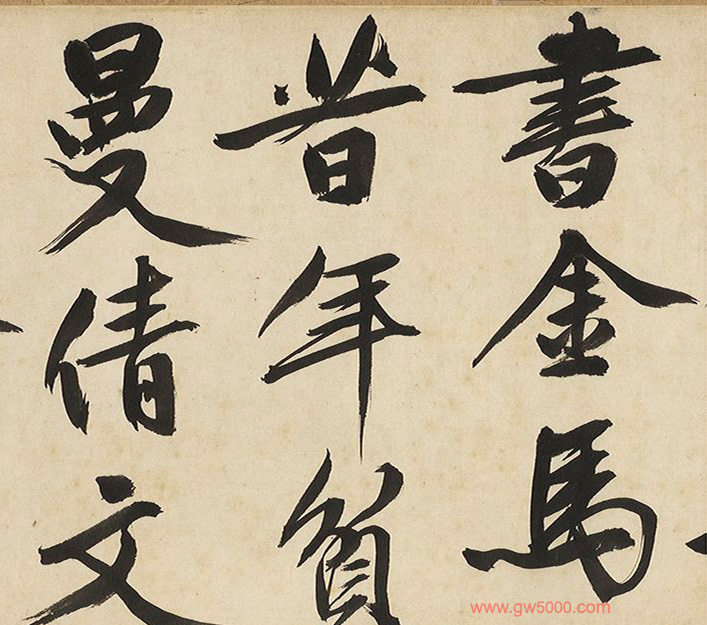 書金馬
昔年貧
曼倩文
www.gw5000.com